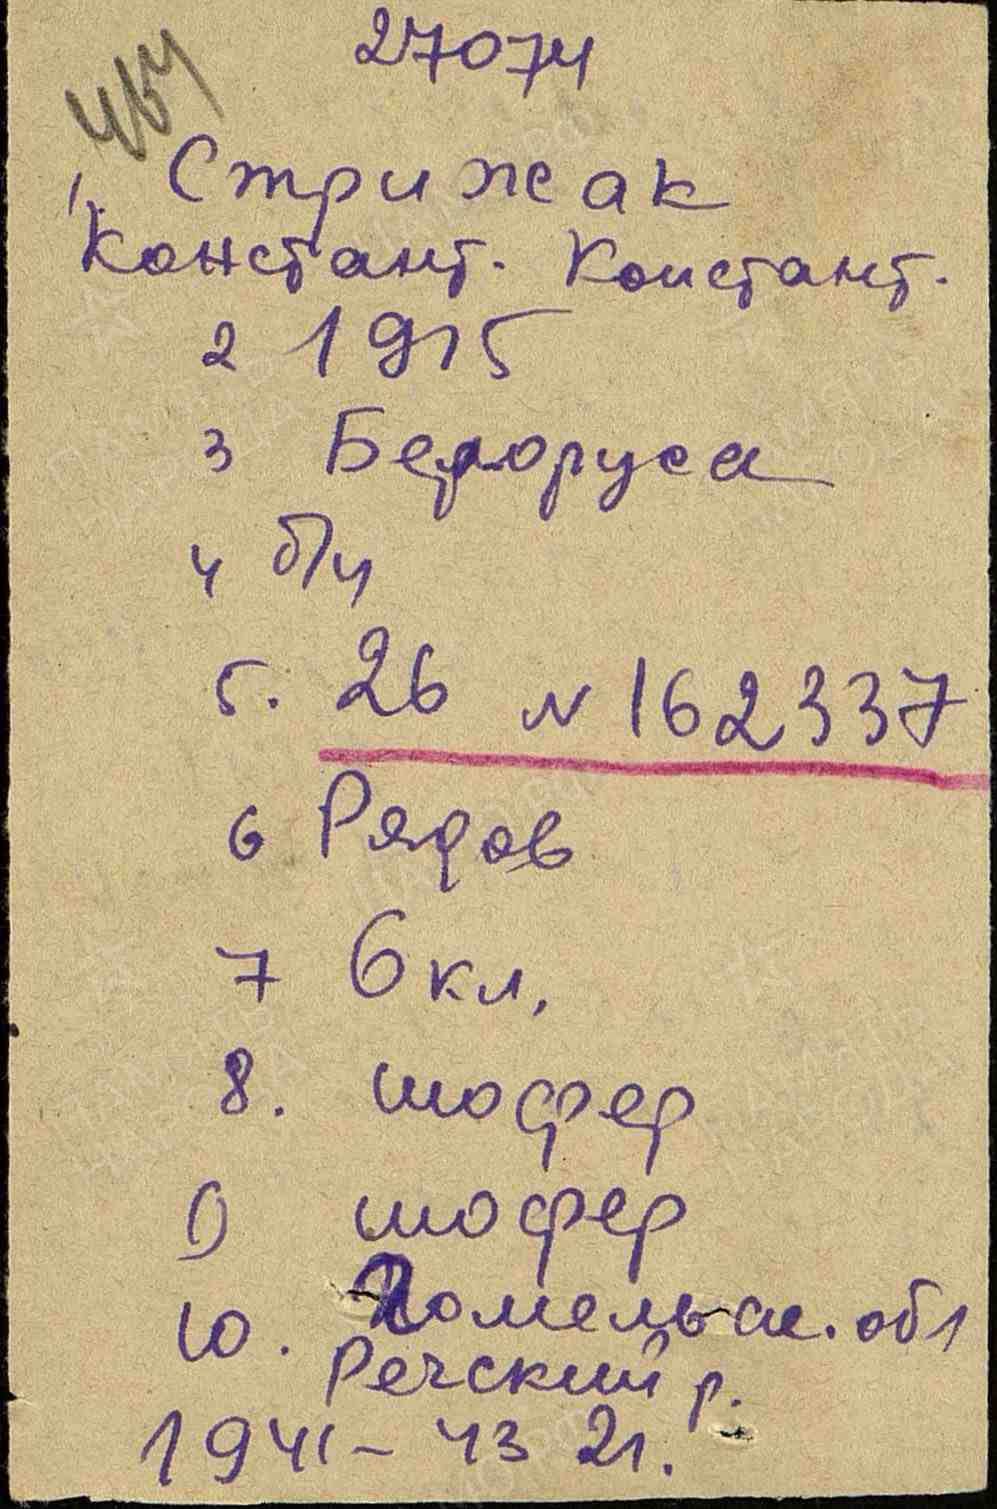 27074
1. Стрижак
Констант. Констант.
2 1915
3 Белоруса
4 б/ч
5. 26 № 162337
6 Рядов
7 6 кл.
8. шофер
9 шофер
10. Гомельск. обл
Речский р.
1941 - 43 гг.